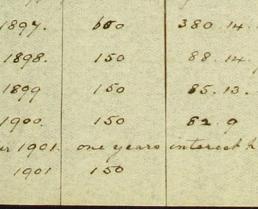 1897. 650 380.14.
1898. 150 88.14.
1899 150 85.13.
1900. 150 82.9
1901. one years interest
1901 150